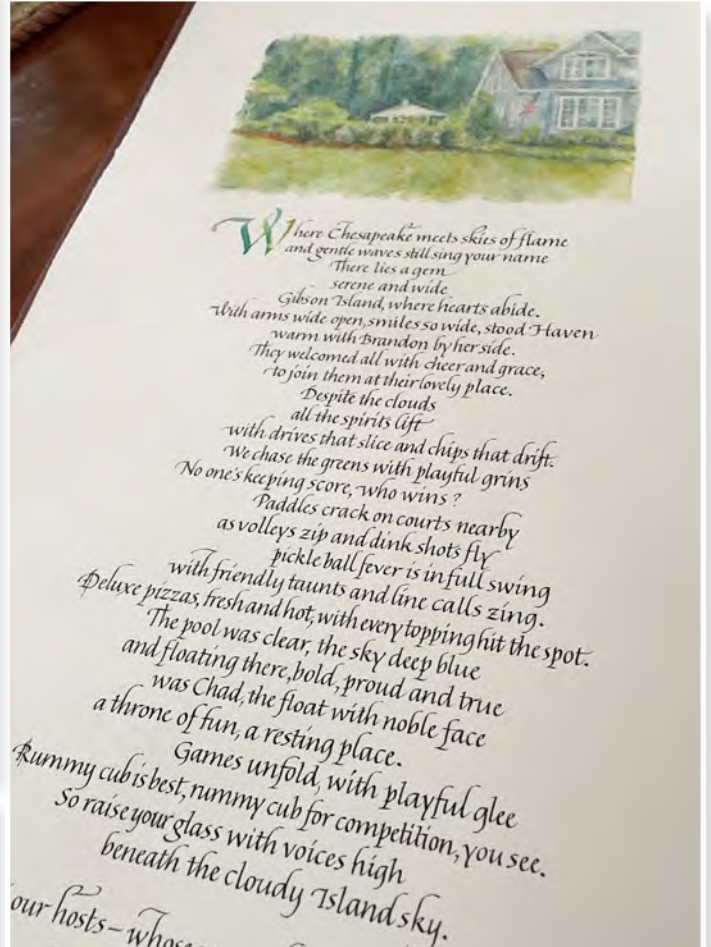 Where Chesapeake meets skies of flame
and gentle waves still sing your name
There lies a gem
serene and wide
Gibson Island, where hearts abide.
With arms wide open, smiles so wide, stood Haven
warm with Brandon by her side.
They welcomed all with cheer and grace,
to join them at their lovely place.
Despite the clouds
all the spirits lift
with drives that slice and chips that drift.
We chase the greens with playful grins
No one's keeping score, who wins?
Paddles crack on courts nearby
as volleys zip and dink shots fly
pickle ball fever is in full swing
with friendly taunts and line calls zing.
Deluxe pizzas, fresh and hot, with every topping hit the spot.
The pool was clear, the sky deep blue
and floating there, bold, proud and true
was Chad, the float with noble face
a throne of fun, a resting place.
Games unfold, with playful glee
Rummy cub is best, rummy cub for competition, you see.
So raise your glass with voices high
beneath the cloudy Island sky.
our hosts – whose